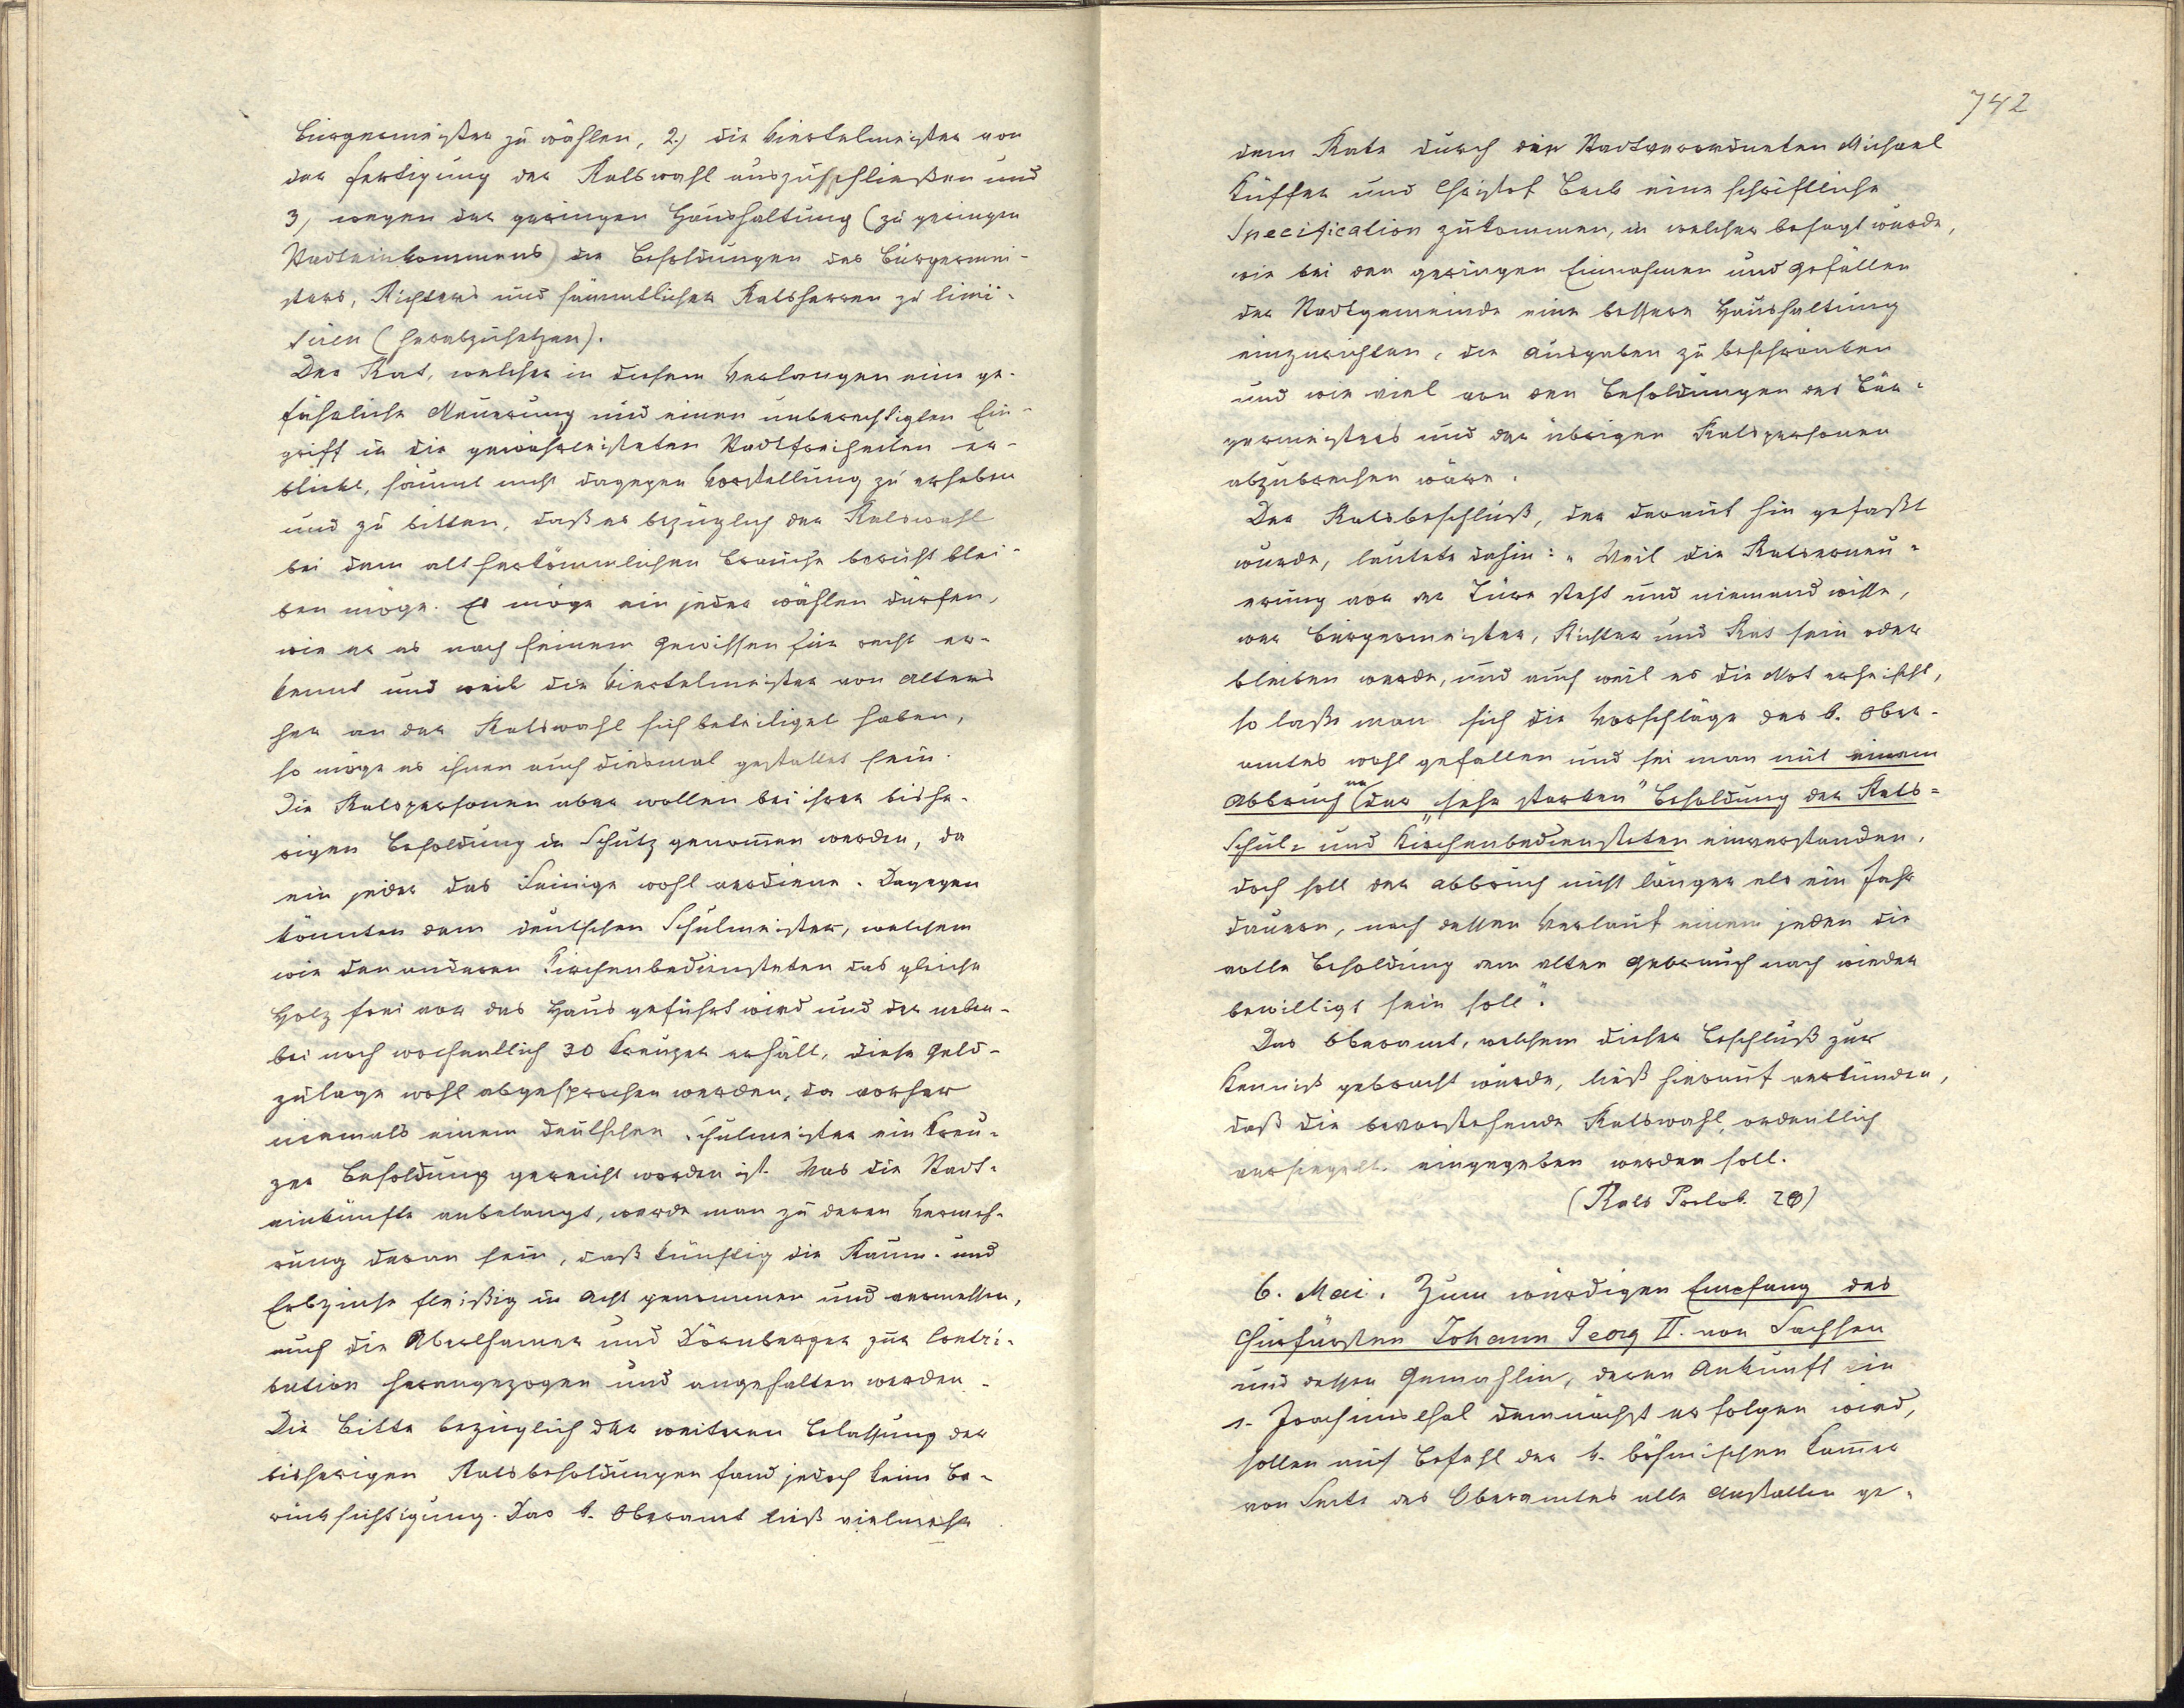 Bürgermeister zu wählen, 2.) die Viertelmeister von
der Fertigung der Ratswahl auszuschließen und
3) wegen der geringen Haushaltung (zu geringen
Stadteinkommens) die Besoldungen des Bürgermei-
sters, Richters und sämmtlicher Ratsherren zu limi-
tiren (herabzusetzen).
Der Rat, welcher in diesem Verlangen eine ge-
fährliche Neuerung und einen unberechtigten Ein-
griff in die gewährleisteten Stadtfreiheiten er-
blickt, säumt nicht dagegen Vorstellung zu erheben
und zu bitten, daß es bezüglich der Ratswahl
bei dem altherkömmlichen Brauche beruht blei-
ben möge. Es möge ein jeder wählen dürfen,
wie er es nach seinem Gewissen für recht er-
kennt und weil die Viertelmeister von Alters
her an der Ratswahl sich beteiliget haben,
so möge es ihnen auch diesmal gestattet sein.
Die Ratspersonen aber wollen bei ihrer bishe-
rigen Besoldung in Schutz genommen werden, da
ein jeder das Seinige wohl verdiene. Dagegen
könnten dem deutschen Schulmeister, welchem
wie den anderen Kirchenbediensteten das gleiche
Holz frei vor das Haus geführt wird und der neben-
bei noch wochentlich 30 Kreuzer erhält, diese Geld-
zulage wohl abgesprochen werden, da vorher
niemals einem deutschen Schulmeister ein Kreu-
zer Besoldung gereicht worden ist. Was die Stadt-
einkünfte anbelangt, werde man zu deren Vermeh-
rung daran sein, daß künftig die Raum- und
Erbzinse fleißig in Acht genommen und vermessen,
auch die Aberthamer und Dörnberger zur Contri-
bution herangezogen und angehalten werden.
Die Bitte bezüglich der weiteren Belassung der
bisherigen Ratsbesoldungen fand jedoch keine Be-
rücksichtigung. Das k. Oberamt ließ vielmehr
742
dem Rate durch die Stadtverordneten Michael
Küffer und Christof Beck eine schriftliche
Specification zukommen, in welcher besagt wurde,
wie bei den geringen Einnahmen und Gefällen
der Stadtgemeinde eine bessere Haushaltung
einzurichten, die Ausgaben zu beschränken
und wie viel von den Besoldungen des Bür-
germeisters und der übrigen Ratspersonen
abzubrechen wäre.
Der Ratsbeschluß, der darauf hin gefaßt
wurde, lautete dahin: "Weil die Ratserneu-
erung vor der Türe steht und niemand wisse,
wer Bürgermeister, Richter und Rat sein oder
bleiben werde, und auch weil es die Not erheischt,
so lasse man sich die Vorschläge des k. Ober-
amtes wohl gefallen und sei man mit einem
Abbruch an der "sehr starken" Besoldung der Rats-
Schul- und Kirchenbediensteten einverstanden,
doch soll der Abbruch nicht länger als ein Jahr
dauern, nach dessen Verlauf einem jeden die
volle Besoldung dem alten Gebrauch nach wieder
bewilligt sein soll".
Das Oberamt, welchem dieser Beschluß zur
Kenntnis gebracht wurde, ließ hierauf verkünden,
daß die bevorstehende Ratswahl ordentlich
versiegelt eingegeben werden soll.
(Rats Protok. 20)
6. Mai. Zum würdigen Empfang des
Churfürsten Johann Georg II. von Sachsen
und dessen Gemahlin, deren Ankunft in
s. Joachimsthal demnächst erfolgen wird,
sollen auf Befehl der k. böhmischen Kammer
von Seite des Oberamtes alle Anstalten ge-